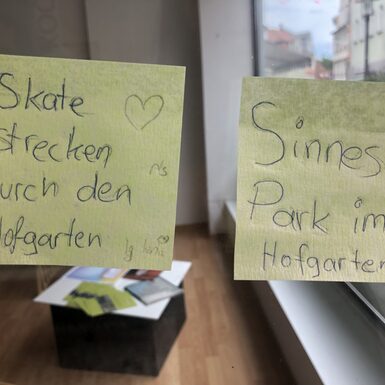 Skate
strecken
durch den
Hofgarten
Sinnes
Park im
Hofgarten